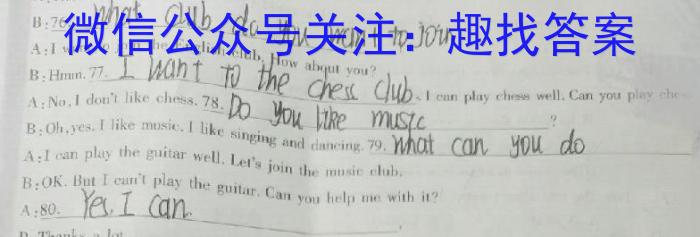 B:76. What club do you want to join
微信公众号关注：趣找答案
A:I club. How about you?
B:Hmm. 77. I want to the chess club. I can play chess well. Can you play che
A:No, I don't like chess. 78. Do you like music ?
B:Oh,yes. I like music. I like singing and dancing. 79. What can you do
A:I can play the guitar well. Let's join the music club.
B:OK. But I can't play the guitar. Can you help me with it?
A:80. Yes. I can.
B:Thanks a lot.